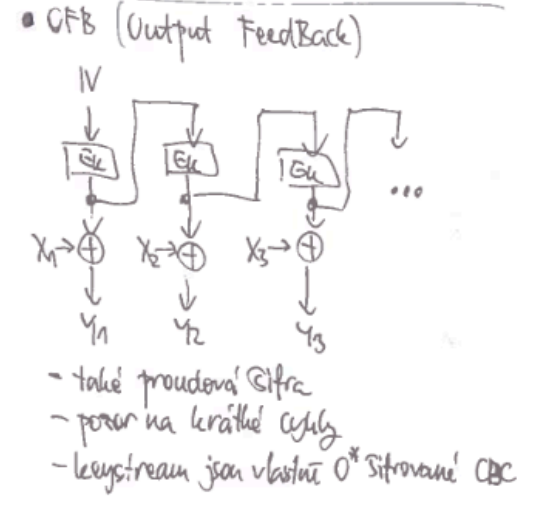 • OFB (Output FeedBack)
IV
Ek Ek Ek
...
X1 → ⊕ X2 → ⊕ X3 → ⊕
Y1 Y2 Y3
- také proudová šifra
- pozor na krátké cykly
- keystream jsou vlastně 0* šifrované CBC